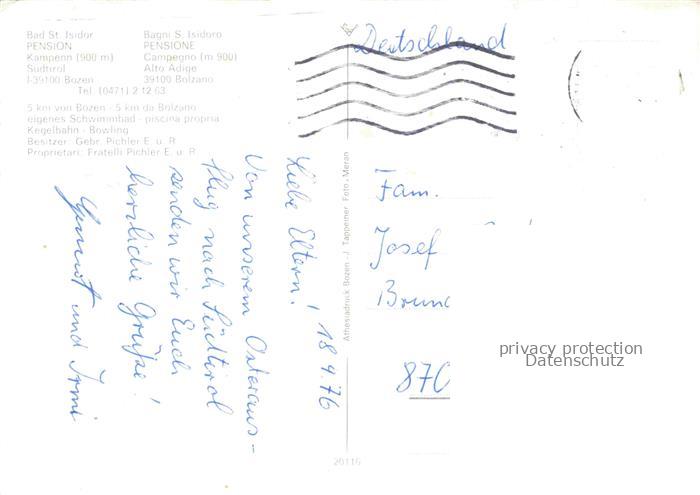 Bad St. Isidor
PENSION
Kampenn (900 m)
Südtirol
I-39100 Bozen
Bagni S. Isidoro
PENSIONE
Campegno (m 900)
Alto Adige
39100 Bolzano
Tel. (0471) 2 12 63
5 km von Bozen - 5 km da Bolzano
eigenes Schwimmbad - piscina propria
Kegelbahn - Bowling
Besitzer: Gebr. Pichler E. u. R.
Proprietari: Fratelli Pichler E. u. R.
18.4.76
Liebe Eltern!
Von unserem Osteraus-
flug nach Südtirol
senden wir Euch
herzliche Grüße!
Gernot und Irmi
Athesiadruck Bozen - J. Tappeiner Foto - Meran
20116
Deutschland
Fam.
Josef
Brunc
870
privacy protection
Datenschutz